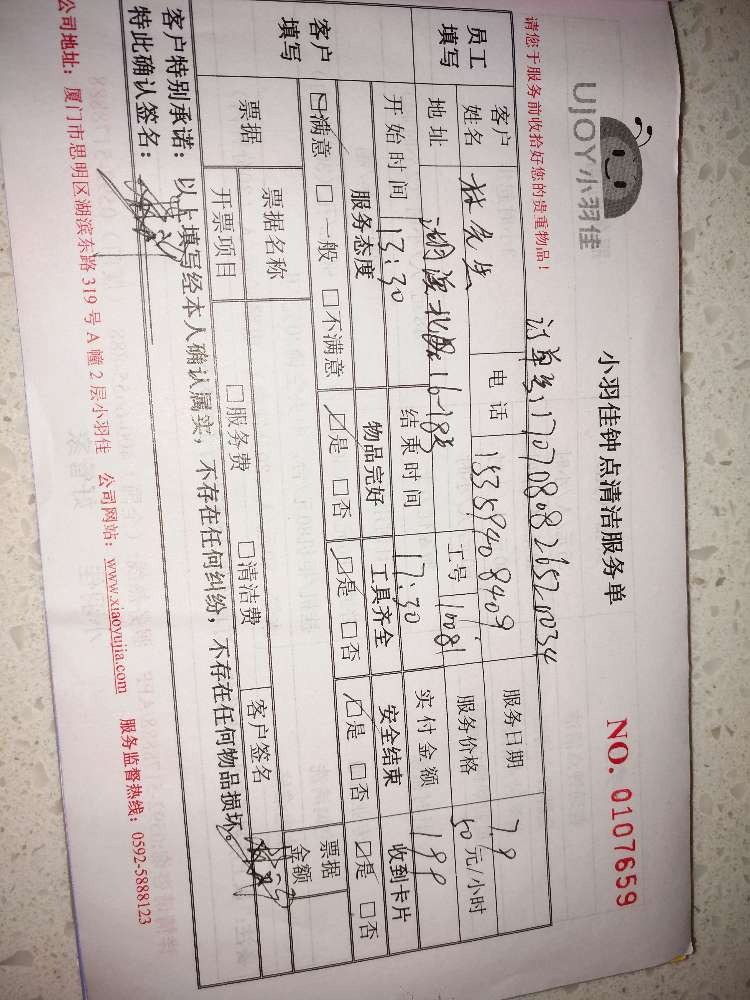 UJOY小羽佳
小羽佳钟点清洁服务单
NO. 0107659
请您于服务前收拾好您的贵重物品！
订单号:1707080826520034
员工填写
客户姓名 林先生 电话 15359408409 服务日期 7.9
地址 湖滨北路16-183 工号 10081 服务价格 50元/小时
开始时间 13:30 结束时间 17:30 实付金额 199
客户填写
服务态度 物品完好 工具齐全 安全结束 收到卡片
☑满意 □一般 □不满意 ☑是 □否 ☑是 □否 ☑是 □否 ☑是 □否
票据 票据名称 票据金额
开票项目 □服务费 □清洁费 客户签名
客户特别承诺：以上填写经本人确认属实，不存在任何纠纷，不存在任何物品损坏。
特此确认签名：
公司地址：厦门市思明区湖滨东路319号A幢2层小羽佳 公司网站：www.xiaoyujia.com 服务监督热线：0592-5888123